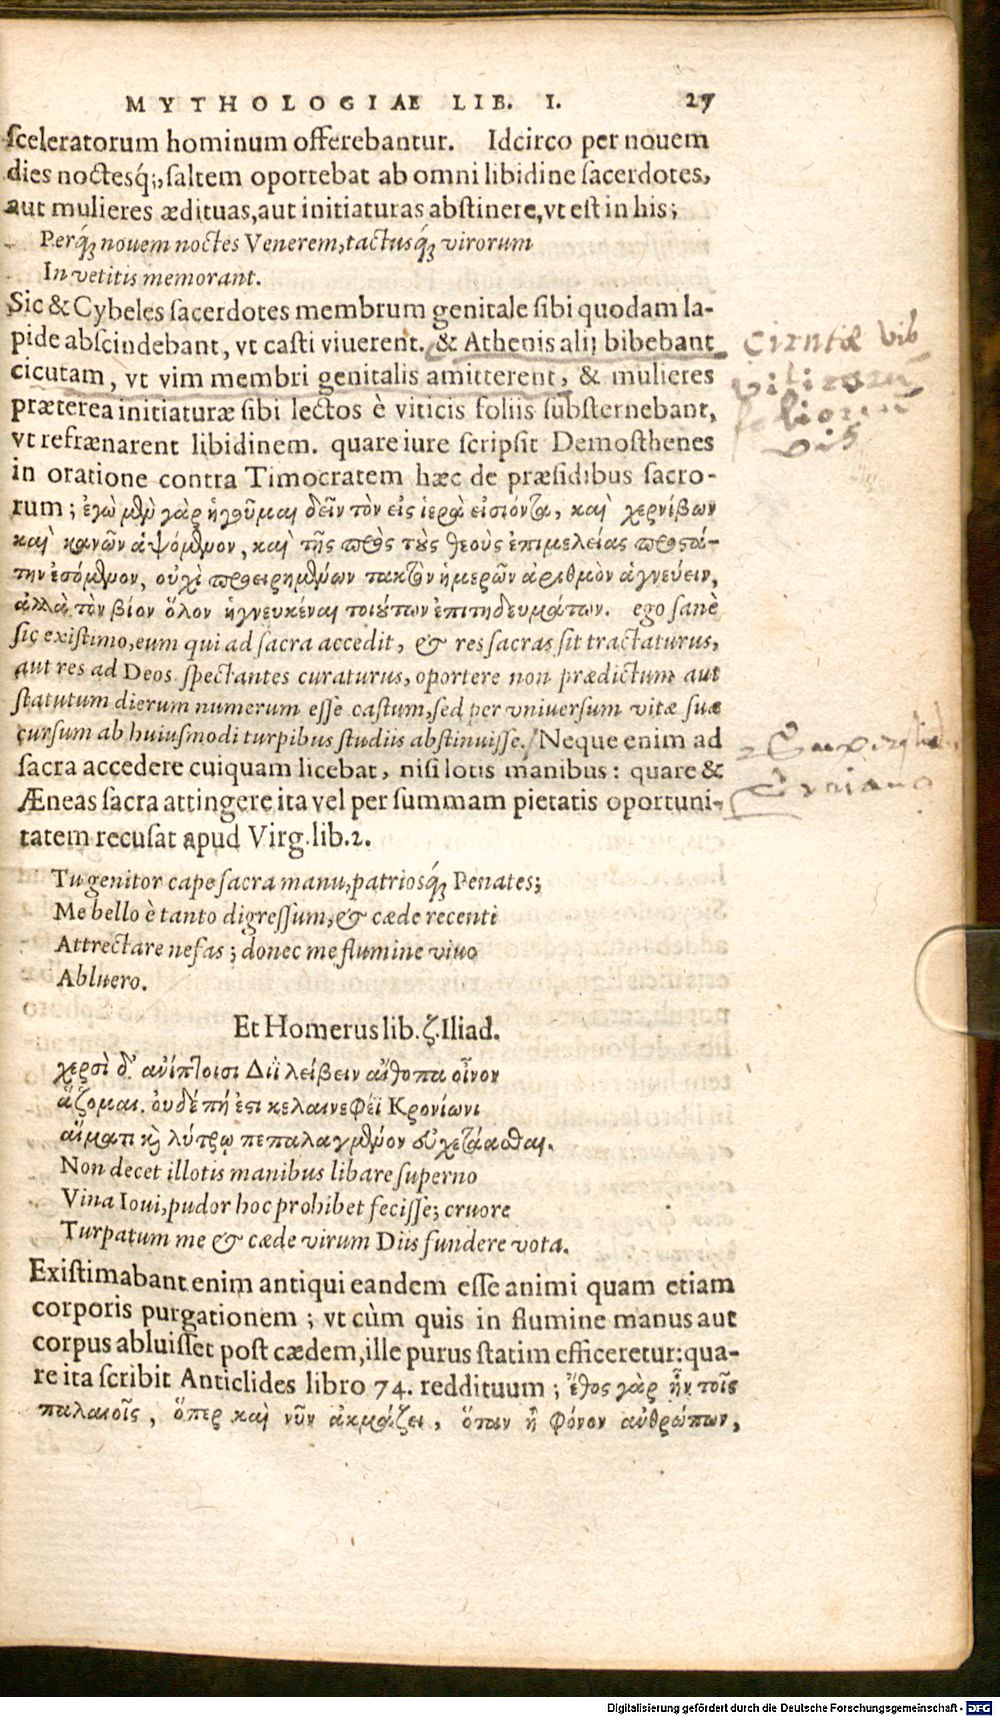 MYTHOLOGIAE LIB. I. 27
sceleratorum hominum offerebantur. Idcirco per nouem
dies noctesq́;, saltem oportebat ab omni libidine sacerdotes,
aut mulieres ædituas, aut initiaturas abstinere, vt est in his;
Perq́; nouem noctes Venerem, tactusq́; virorum
In vetitis memorant.
Sic & Cybeles sacerdotes membrum genitale sibi quodam la-
pide abscindebant, vt casti viuerent. & Athenis alij bibebant
cicutam, vt vim membri genitalis amitterent, & mulieres
præterea initiaturæ sibi lectos è viticis foliis substernebant,
vt refrænarent libidinem. quare iure scripsit Demosthenes
in oratione contra Timocratem hæc de præsidibus sacro-
rum; ἐγὼ μὲν γὰρ ἡγοῦμαι δεῖν τὸν εἰς ἱερὰ εἰσιόντα, καὶ χερνίβων
καὶ κανῶν ἁψόμενον, καὶ τῆς πρὸς τοὺς θεοὺς ἐπιμελείας προστά-
την ἐσόμενον, οὐχὶ προειρημένων τακτὸν ἡμερῶν ἀριθμὸν ἁγνεύειν,
ἀλλὰ τὸν βίον ὅλον ἡγνευκέναι τοιούτων ἐπιτηδευμάτων. ego sanè
sic existimo, eum qui ad sacra accedit, & res sacras sit tractaturus,
aut res ad Deos spectantes curaturus, oportere non prædictum aut
statutum dierum numerum esse castum, sed per vniuersum vitæ suæ
cursum ab huiusmodi turpibus studiis abstinuisse. Neque enim ad
sacra accedere cuiquam licebat, nisi lotis manibus: quare &
Æneas sacra attingere ita vel per summam pietatis oportuni-
tatem recusat apud Virg. lib. 2.
Tu genitor cape sacra manu, patriosq́; Penates;
Me bello è tanto digressum, & cæde recenti
Attrectare nefas; donec me flumine viuo
Abluero.
Et Homerus lib. ζ. Iliad.
χερσὶ δ' ἀνίπτοισι Διῒ λείβειν αἴθοπα οἶνον
ἅζομαι. οὐδέ πή ἐστι κελαινεφέϊ Κρονίωνι
αἵματι καὶ λύτρῳ πεπαλαγμένον εὐχετάασθαι.
Non decet illotis manibus libare superno
Vina Ioui, pudor hoc prohibet fecisse; cruore
Turpatum me & cæde virum Diis fundere vota.
Existimabant enim antiqui eandem esse animi quam etiam
corporis purgationem; vt cùm quis in flumine manus aut
corpus abluisset post cædem, ille purus statim efficeretur: qua-
re ita scribit Anticlides libro 74. reddituum; ἔθος γὰρ ἦν τοῖς
παλαιοῖς, ὅπερ καὶ νῦν ἀκμάζει, ὅταν ἢ φόνον ἀνθρώπων,
Digitalisierung gefördert durch die Deutsche Forschungsgemeinschaft - DFG